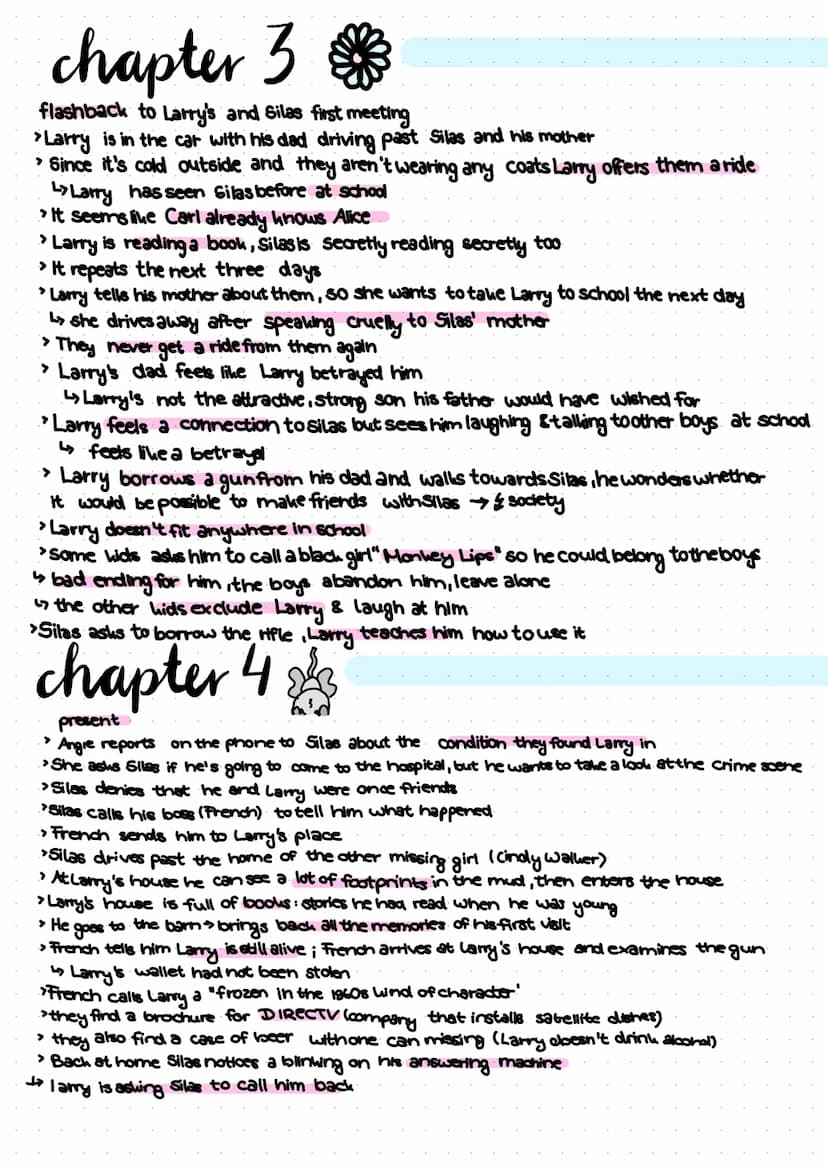 chapter 3
flashback to Larry's and Silas first meeting
> Larry is in the car with his dad driving past Silas and his mother
> Since it's cold outside and they aren't wearing any coats Larry offers them a ride
↳ Larry has seen Silas before at school
> It seems like Carl already knows Alice
> Larry is reading a book, Silas is secretly reading secretly too
> It repeats the next three days
> Larry tells his mother about them, so she wants to take Larry to school the next day
↳ she drives away after speaking cruelly to Silas' mother
> They never get a ride from them again
> Larry's dad feels like Larry betrayed him
↳ Larry's not the attractive, strong son his father would have wished for
> Larry feels a connection to Silas but sees him laughing & talking to other boys at school
↳ feels like a betrayal
> Larry borrows a gun from his dad and walks towards Silas, he wonders whether
it would be possible to make friends with Silas → ↯ society
> Larry doesn't fit anywhere in school
> some kids asks him to call a black girl "Monkey Lips" so he could belong to the boys
↳ bad ending for him, the boys abandon him, leave alone
↳ the other kids exclude Larry & laugh at him
> Silas asks to borrow the rifle, Larry teaches him how to use it
chapter 4
present
> Angie reports on the phone to Silas about the condition they found Larry in
> She asks Silas if he's going to come to the hospital, but he wants to take a look at the crime scene
> Silas denies that he and Larry were once friends
> Silas calls his boss (French) to tell him what happened
> French sends him to Larry's place
> Silas drives past the home of the other missing girl (Cindy Walker)
> At Larry's house he can see a lot of footprints in the mud, then enters the house
> Larry's house is full of books: stories he had read when he was young
> He goes to the barn → brings back all the memories of his first visit
> French tells him Larry is still alive; French arrives at Larry's house and examines the gun
↳ Larry's wallet had not been stolen
> French calls Larry a "frozen in the 1960s kind of character'
> they find a brochure for DIRECTV (company that installs satellite dishes)
> they also find a case of beer with one can missing (Larry doesn't drink alcohol)
> Back at home Silas notices a blinking on his answering machine
↳ larry is asking Silas to call him back